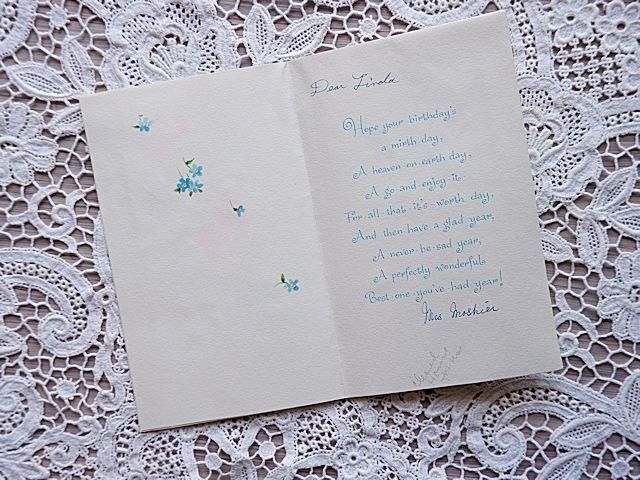 Dear Linda
Hope your birthday's
a mirth day,
A heaven-on-earth day,
A go-and-enjoy-it-
For-all-that-it's-worth day,
And then have a glad year,
A never-be-sad year,
A perfectly wonderful
Best-one-you've-had year!
Mrs Moshier